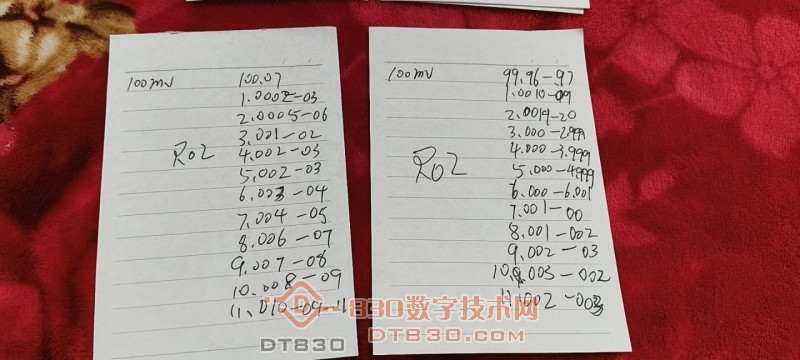 100mv 100.07
1.0002-03
2.0005-06
3.001-02
R02 4.002-03
5.002-03
6.003-04
7.004-05
8.006-07
9.007-08
10.008-09
11.010-09-11
100mv 99.96-97
1.0010-09
2.0019-20
3.000-2.999
4.000-3.999
R02 5.000-4.999
6.000-6.001
7.001-00
8.001-002
9.002-03
10.003-002
11.002-003
830数字技术网
DT830 DT830.COM